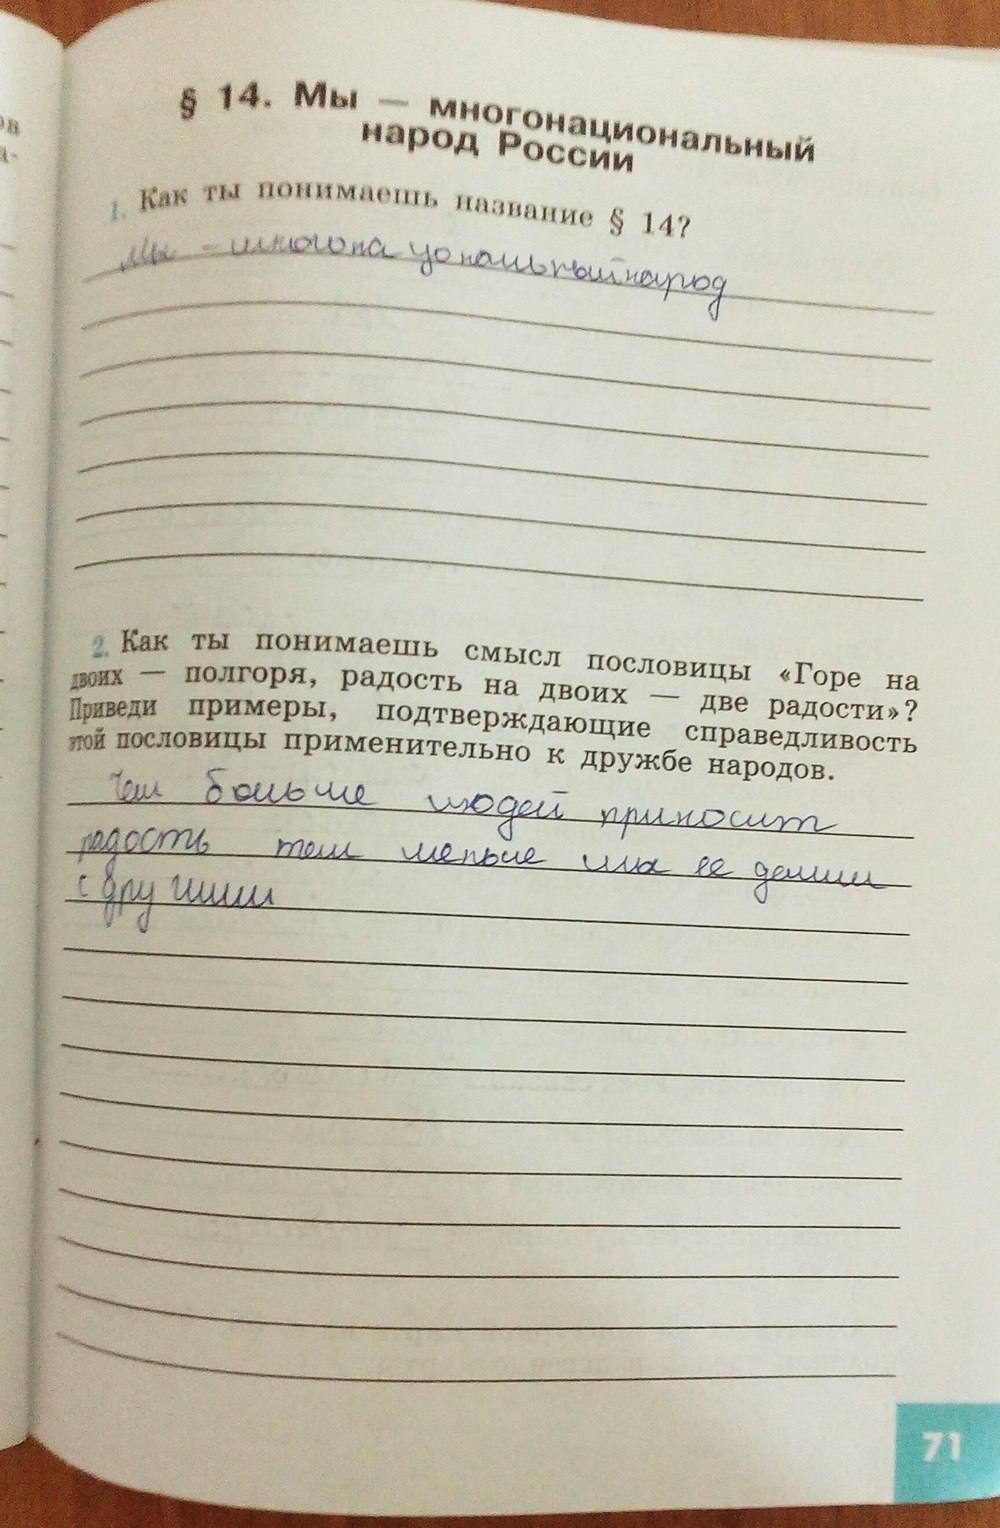 ов
а-
§ 14. Мы — многонациональный
народ России
1. Как ты понимаешь название § 14?
Мы - многона цональный народ
2. Как ты понимаешь смысл пословицы «Горе на
двоих — полгоря, радость на двоих — две радости»?
Приведи примеры, подтверждающие справедливость
этой пословицы применительно к дружбе народов.
Чем больше людей приносит
радость тем меньше мы ее делим
с дру гими
71